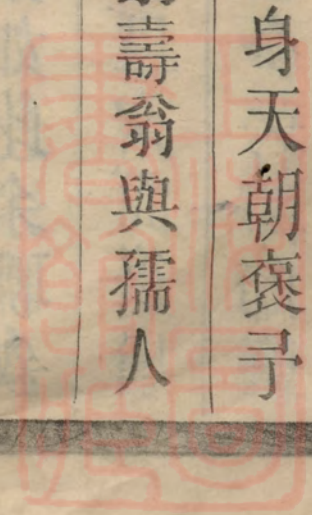 身天朝褒予
壽翁與孺人